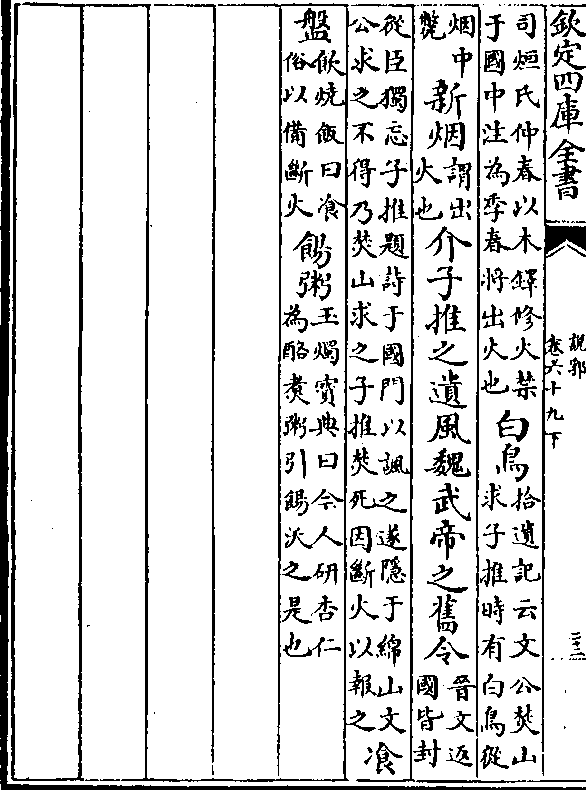 欽定四庫全書
說郛
卷六十九下
司烜氏仲春以木鐸修火禁
于國中注為季春將出火也
白鳥
拾遺記云文公焚山
求子推時有白鳥從
烟中
新烟
謂出
火也
介子推之遺風魏武帝之舊令
晉文返
國皆封
從臣獨忘子推題詩于國門以諷之遂隱于綿山文
公求之不得乃焚山求之子推焚死因斷火以報之
飡
盤
飲燒飯曰飡
俗以備斷火
餳粥
玉燭寶典曰今人研杏仁
為酪煑粥引餳沃之是也